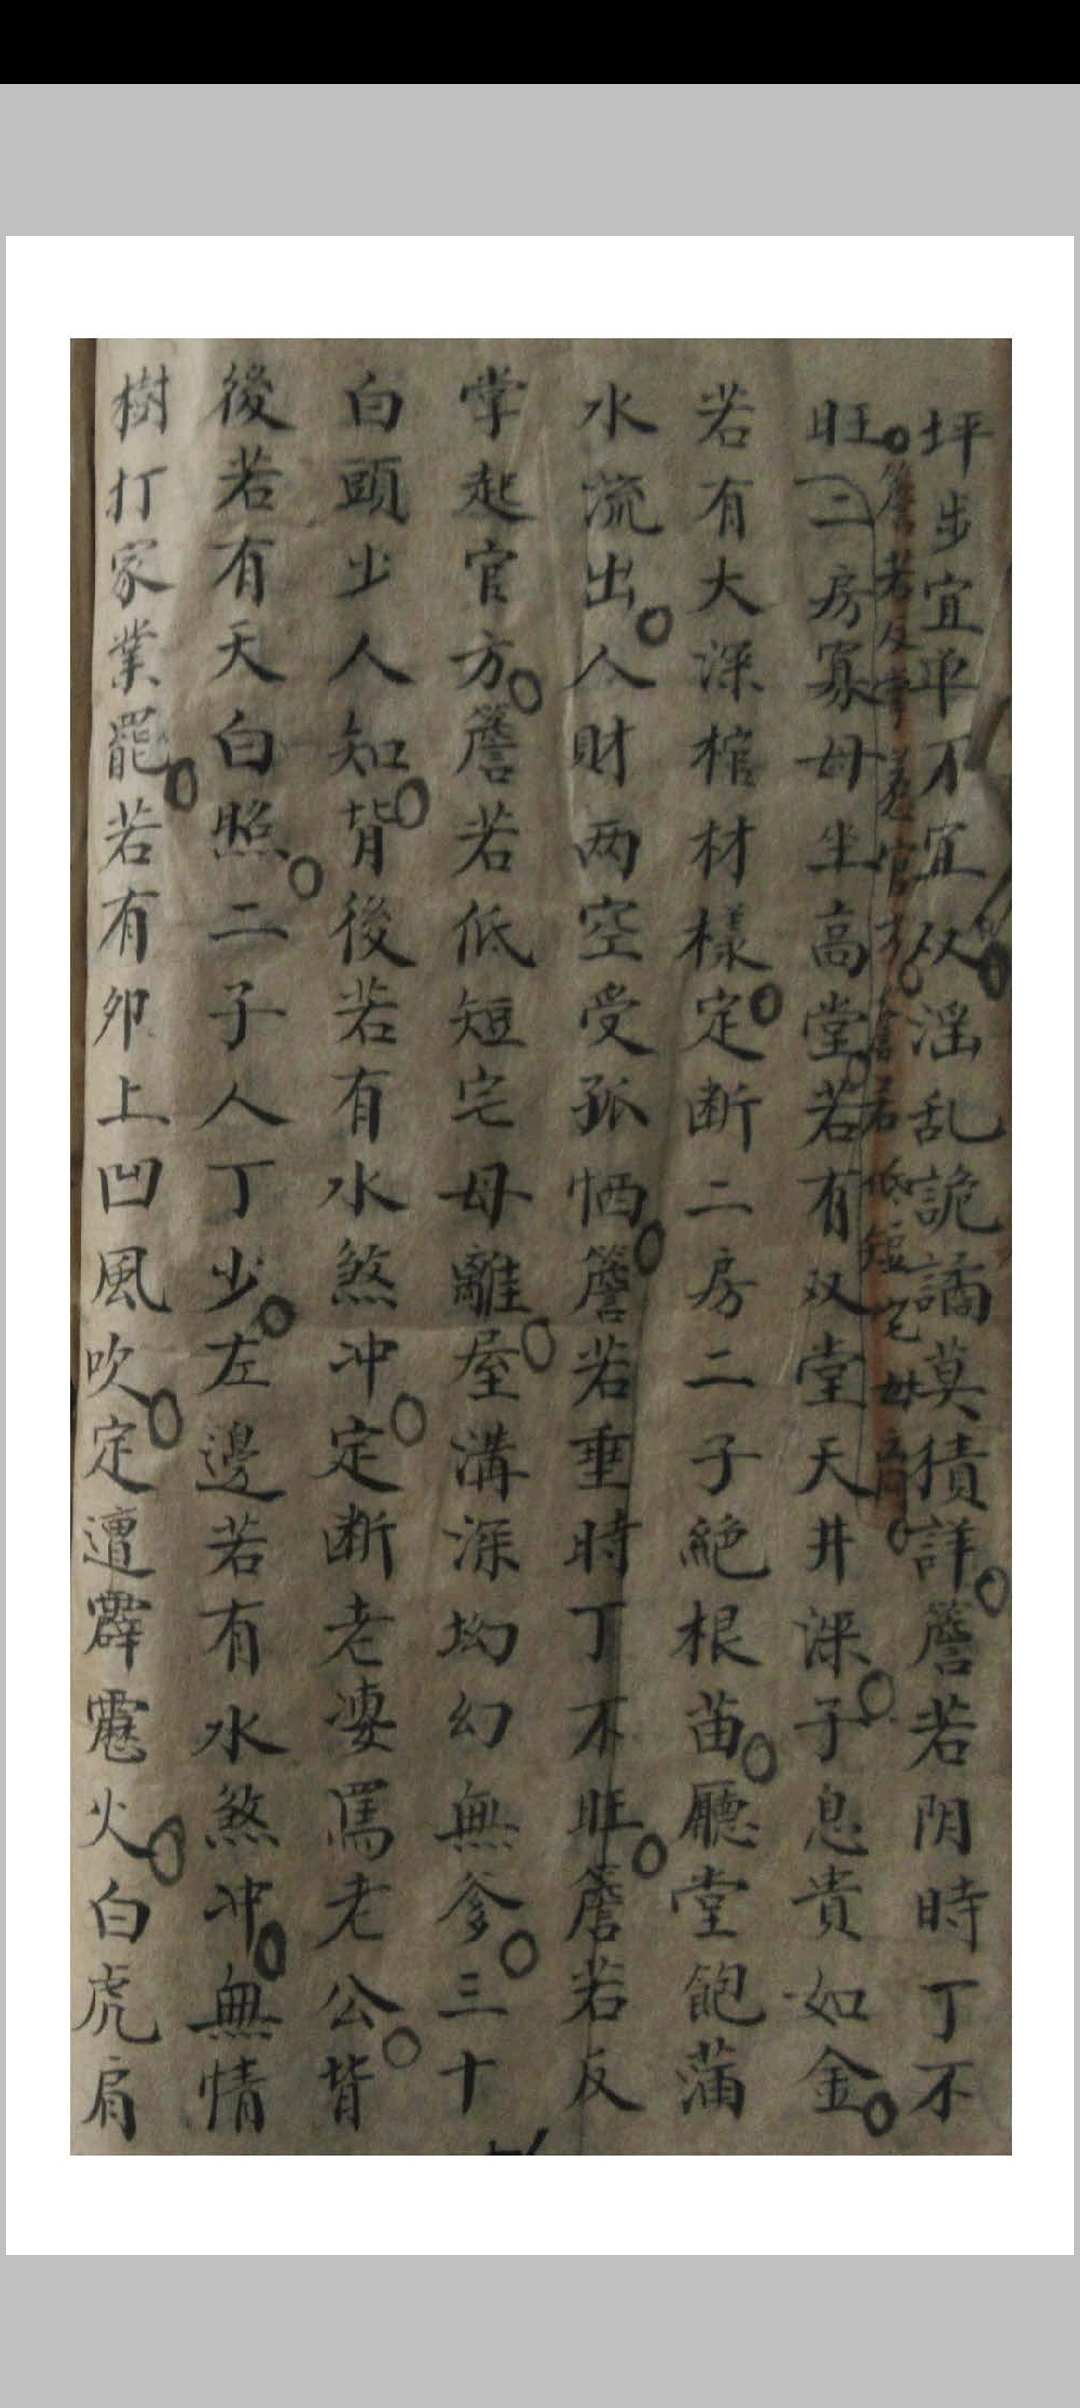 坪步宜平不宜从淫乱詭譎莫猜詳簷若阴時丁不
旺二房寡母坐高堂若有双堂天井深子息貴如金
簷若反掌惹官方簷若低短宅母
若有大深棺材樣定断二房二子絶根苗廳堂飽滿
水流出人財两空受孤恓簷若垂時丁不旺簷若反
掌起官方簷若低短宅母離屋溝深坳幻無爹三十
白頭少人知背後若有水煞冲定断老婆罵老公背
後若有天白照二子人丁少左邊若有水煞冲無情
樹打家業罷若有卯上凹風吹定遭霹靂火白虎肩